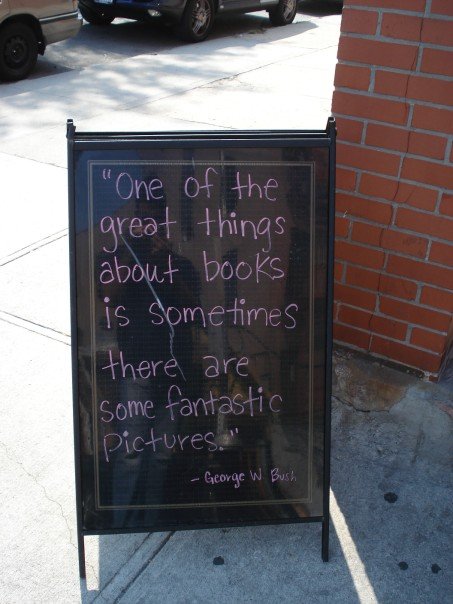 "One of the
great things
about books
is sometimes
there are
some fantastic
pictures."
- George W Bush